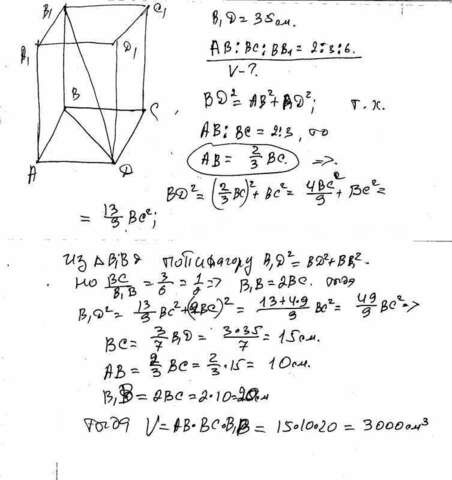 B₁ C₁
B₁ D₁
B C
A D
B₁D = 35 см.
AB : BC : BB₁ = 2:3:6.
V - ?
BD² = AB² + AD²; т.к.
AB : BC = 2:3, то
AB = 2/3 BC. =>.
BD² = (2/3 BC)² + BC² = 4BC²/9 + BC² =
= 13/9 BC²;
Из ΔB₁BD по Пифагору B₁D² = BD² + BB₁².
Но BC/B₁B = 3/6 = 1/2 => B₁B = 2BC. тогда
B₁D² = 13/9 BC² + (2BC)² = 13+4·9/9 BC² = 49/9 BC² =>
BC = 3/7 B₁D = 3·35/7 = 15 см.
AB = 2/3 BC = 2/3 · 15 = 10 см.
B₁B = 2BC = 2·10 = 20 см
тогда V = AB·BC·B₁B = 15·10·20 = 3000 см³